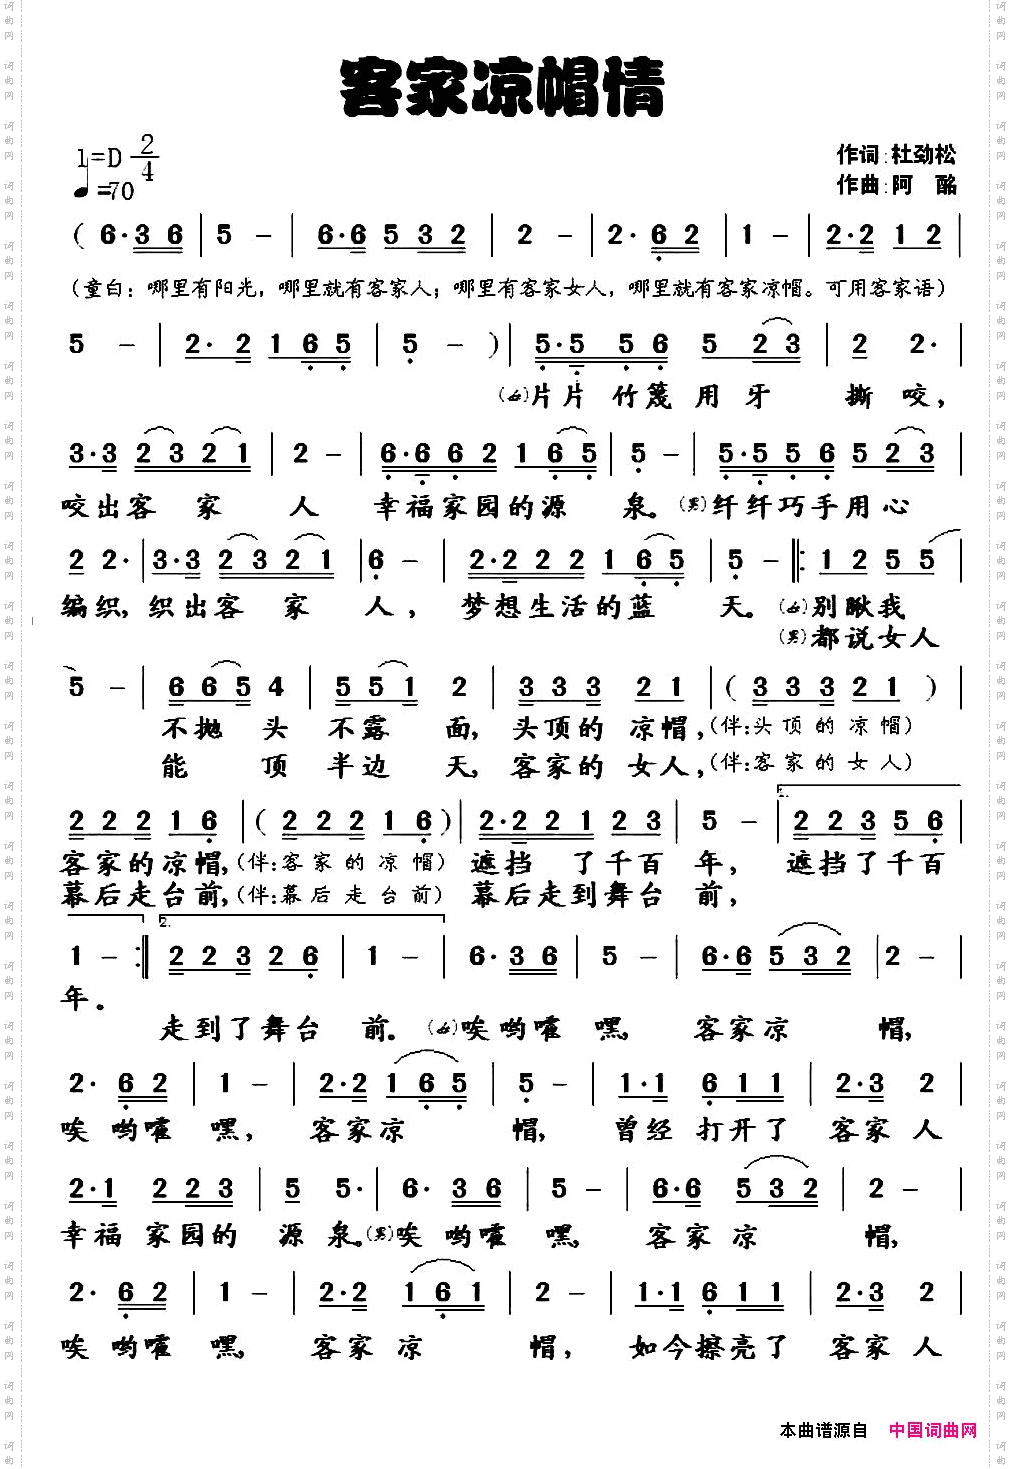 客家凉帽情
1=D 2/4
作词:杜劲松
♩=70
作曲:阿 酩
( 6·3 6 | 5 － | 6·6 5 3 2 | 2 － | 2· 6 2 | 1 － | 2·2 1 2 |
(童白: 哪里有阳光, 哪里就有客家人; 哪里有客家女人, 哪里就有客家凉帽。可用客家语)
5 － | 2· 2 1 6 5 | 5 － ) | 5·5 5 6 5 2 3 | 2 2· |
(女)片片 竹篾 用 牙 撕 咬,
3·3 2 3 2 1 | 2 － | 6·6 6 2 1 6 5 | 5 － | 5·5 5 6 5 2 3 |
咬出客 家 人 幸福家园的源 泉。(男)纤纤巧手用心
2 2· | 3·3 2 3 2 1 | 6 － | 2·2 2 2 1 6 5 | 5 － |: 1 2 5 5 |
编织, 织出客 家 人, 梦想生活的蓝 天。(女)别瞅我
(男)都说女人
5 － | 6 6 5 4 | 5 5 1 2 | 3 3 3 2 1 | ( 3 3 3 2 1 ) |
不抛 头 不露 面, 头顶的 凉帽,(伴:头顶的凉帽)
能 顶 半边 天, 客家的 女人,(伴:客家的女人)
2 2 2 1 6 | ( 2 2 2 1 6 ) | 2·2 2 1 2 3 | 5 － | 1. 2 2 3 5 6 |
客家的凉帽,(伴:客家的凉帽) 遮挡 了千百 年, 遮挡了千百
幕后走台前,(伴:幕后走台前) 幕后走到舞台 前,
1 － :| 2. 2 2 3 2 6 | 1 － | 6·3 6 | 5 － | 6·6 5 3 2 | 2 － |
年。
走到了舞台 前。(女)唉哟嚯 嘿, 客家凉 帽,
2· 6 2 | 1 － | 2·2 1 6 5 | 5 － | 1·1 6 1 1 | 2·3 2 |
唉 哟嚯 嘿, 客家凉 帽, 曾经 打开了 客家 人
2·1 2 2 3 | 5 5· | 6· 3 6 | 5 － | 6·6 5 3 2 | 2 － |
幸福 家园的 源 泉。(男)唉 哟嚯 嘿, 客家 凉 帽,
2· 6 2 | 1 － | 2·2 1 6 1 | 2 － | 1·1 6 1 1 | 2·3 2 |
唉 哟嚯 嘿, 客家 凉 帽, 如今擦亮了 客家 人
本曲谱源自 中国词曲网